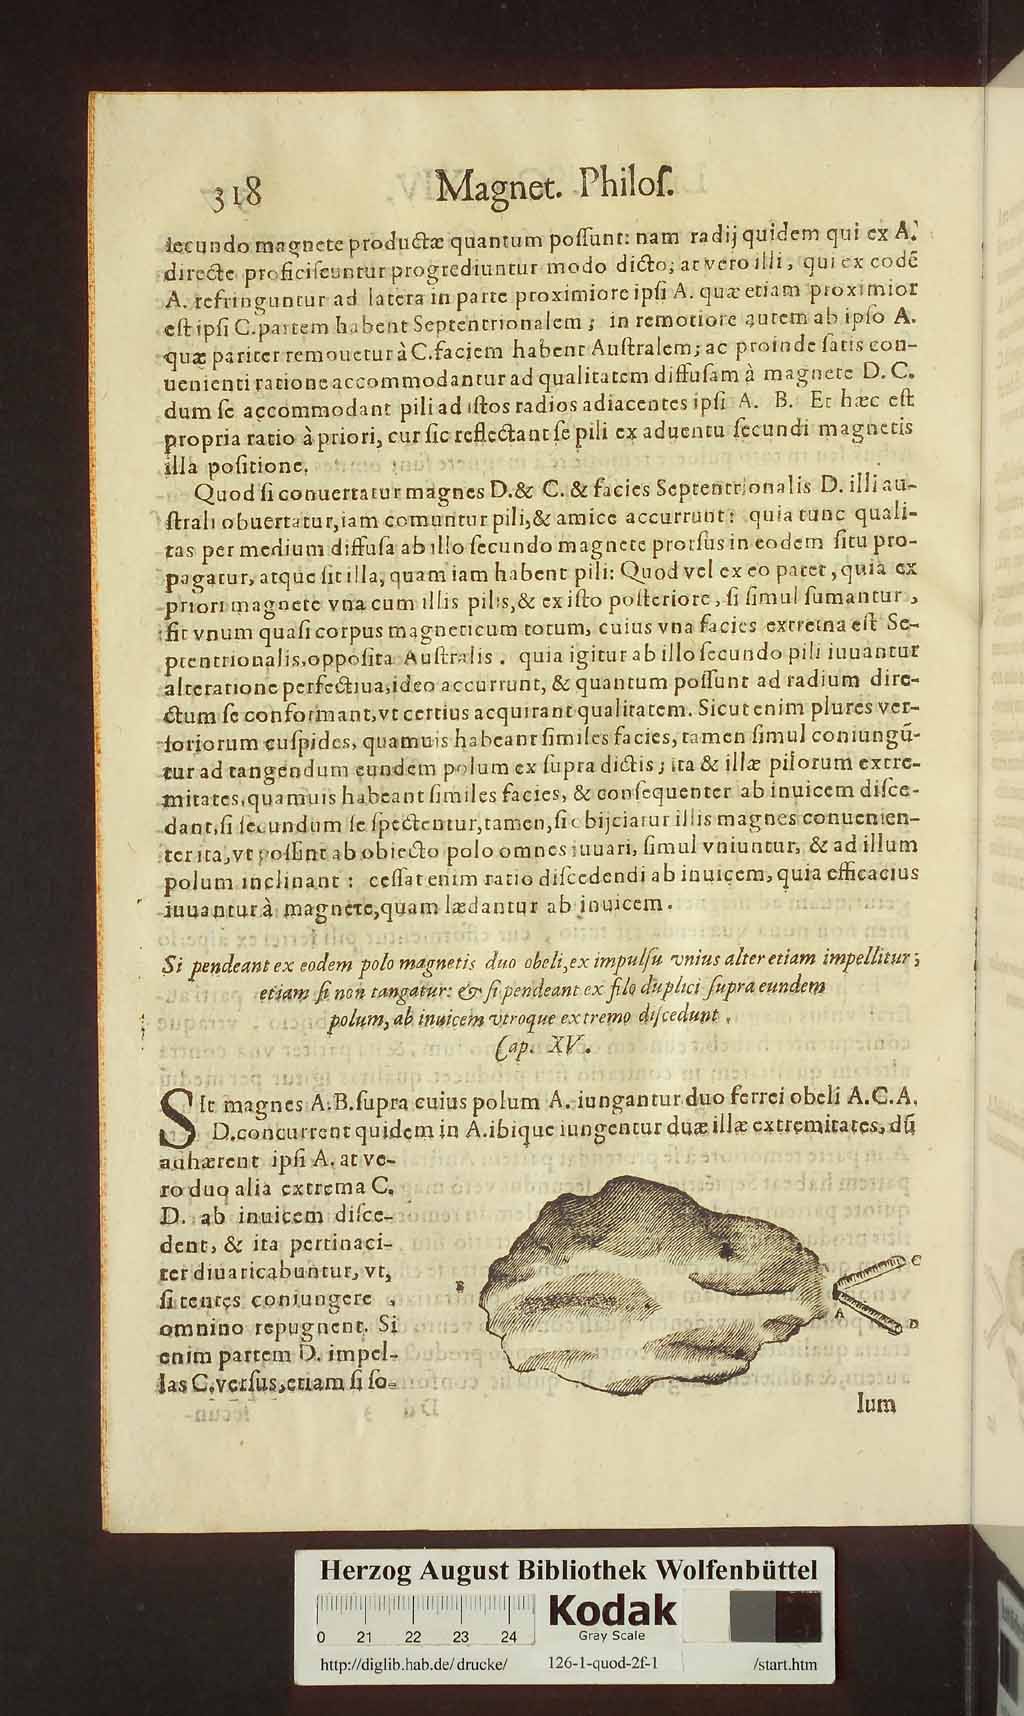 318 Magnet. Philoſ.
ſecundo magnete productæ quantum poſſunt: nam radij quidem qui ex A.
directe proficiſcuntur progrediuntur modo dicto; at vero illi, qui ex eodē
A. refringuntur ad latera in parte proximiore ipſi A. quæ etiam proximior
eſt ipſi C. partem habent Septentrionalem; in remotiore autem ab ipſo A.
quæ pariter remouetur à C. faciem habent Auſtralem; ac proinde ſatis con-
uenienti ratione accommodantur ad qualitatem diffuſam à magnete D. C.
dum ſe accommodant pili ad iſtos radios adiacentes ipſi A. B. Et hæc eſt
propria ratio à priori, cur ſic reflectant ſe pili ex aduentu ſecundi magnetis
illa poſitione.
Quod ſi conuertatur magnes D. & C. & facies Septentrionalis D. illi au-
ſtrali obuertatur, iam comuntur pili, & amice accurrunt: quia tunc quali-
tas per medium diffuſa ab illo ſecundo magnete prorſus in eodem ſitu pro-
pagatur, atque ſit illa, quam iam habent pili: Quod vel ex eo patet, quia ex
priori magnete vna cum illis pilis, & ex iſto poſteriore, ſi ſimul ſumantur,
fit vnum quaſi corpus magneticum totum, cuius vna facies extrema eſt Se-
ptentrionalis, oppoſita Auſtralis. quia igitur ab illo ſecundo pili iuuantur
alteratione perfectiua, ideo accurrunt, & quantum poſſunt ad radium dire-
ctum ſe conformant, vt certius acquirant qualitatem. Sicut enim plures ver-
ſoriorum cuſpides, quamuis habeant ſimiles facies, tamen ſimul coniungū-
tur ad tangendum eundem polum ex ſupra dictis; ita & illæ pilorum extre-
mitates, quamuis habeant ſimiles facies, & conſequenter ab inuicem diſce-
dant, ſi ſecundum ſe ſpectentur, tamen, ſi obijciatur illis magnes conuenien-
ter ita, vt poſſint ab obiecto polo omnes iuuari, ſimul vniuntur, & ad illum
polum inclinant: ceſſat enim ratio diſcedendi ab inuicem, quia efficacius
iuuantur à magnete, quam lædantur ab inuicem.
Si pendeant ex eodem polo magnetis duo obeli, ex impulſu vnius alter etiam impellitur;
etiam ſi non tangatur: & ſi pendeant ex filo duplici ſupra eundem
polum, ab inuicem vtroque extremo diſcedunt.
Cap. XV.
SIt magnes A. B. ſupra cuius polum A. iungantur duo ferrei obeli A. C. A.
D. concurrent quidem in A. ibique iungentur duæ illæ extremitates, dū
adhærent ipſi A. at ve-
ro duo alia extrema C.
D. ab inuicem diſce-
dent, & ita pertinaci-
ter diuaricabuntur, vt,
ſi tentes coniungere,
omnino repugnent. Si
enim partem D. impel-
las C. verſus, etiam ſi ſo-
B
C
A
D
lum
Herzog August Bibliothek Wolfenbüttel
0 21 22 23 24
Kodak
Gray Scale
http://diglib.hab.de/drucke/ 126-1-quod-2f-1 /start.htm